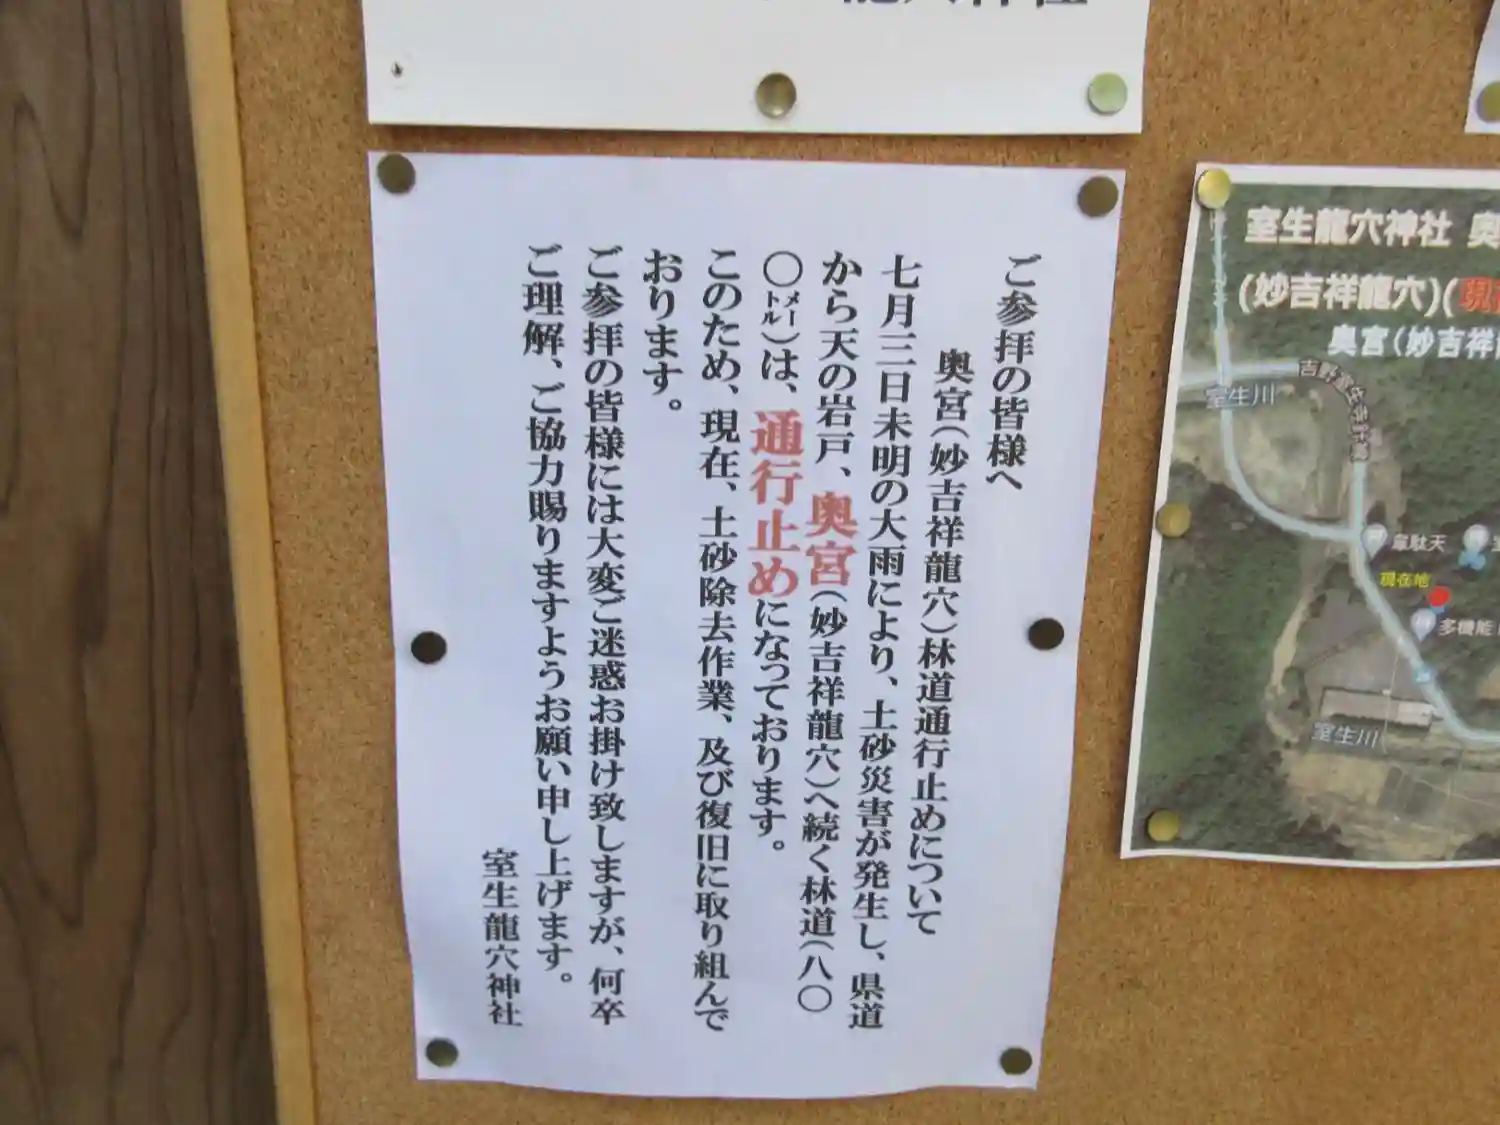 ご参拝の皆様へ
奥宮(妙吉祥龍穴)林道通行止めについて
七月三日未明の大雨により、土砂災害が発生し、県道
から天の岩戸、奥宮(妙吉祥龍穴)へ続く林道(八〇
〇メートル)は、通行止めになっております。
このため、現在、土砂除去作業、及び復旧に取り組んで
おります。
ご参拝の皆様には大変ご迷惑お掛け致しますが、何卒
ご理解、ご協力賜りますようお願い申し上げます。
室生龍穴神社
室生龍穴神社 奥
(妙吉祥龍穴)(現
奥宮(妙吉祥
室生川
韋駄天
現在地
多機能
室生川